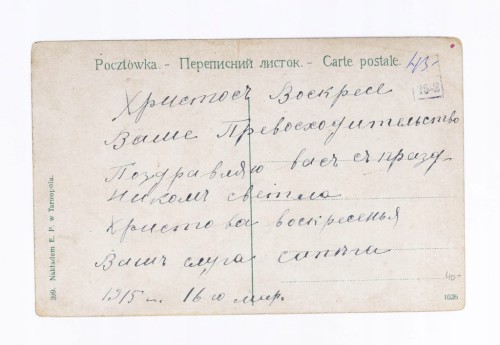 Pocztówka. - Переписний листок. - Carte postale.
43-
Христосъ Воскресе
Ваше Превосходительство
Поздравляю васъ съ празд
никомъ светла
Христова воскресенья
Вашъ слуга
1915 16го мар.
399. Nakładem E. P. w Tarnopolu.
40-
1026